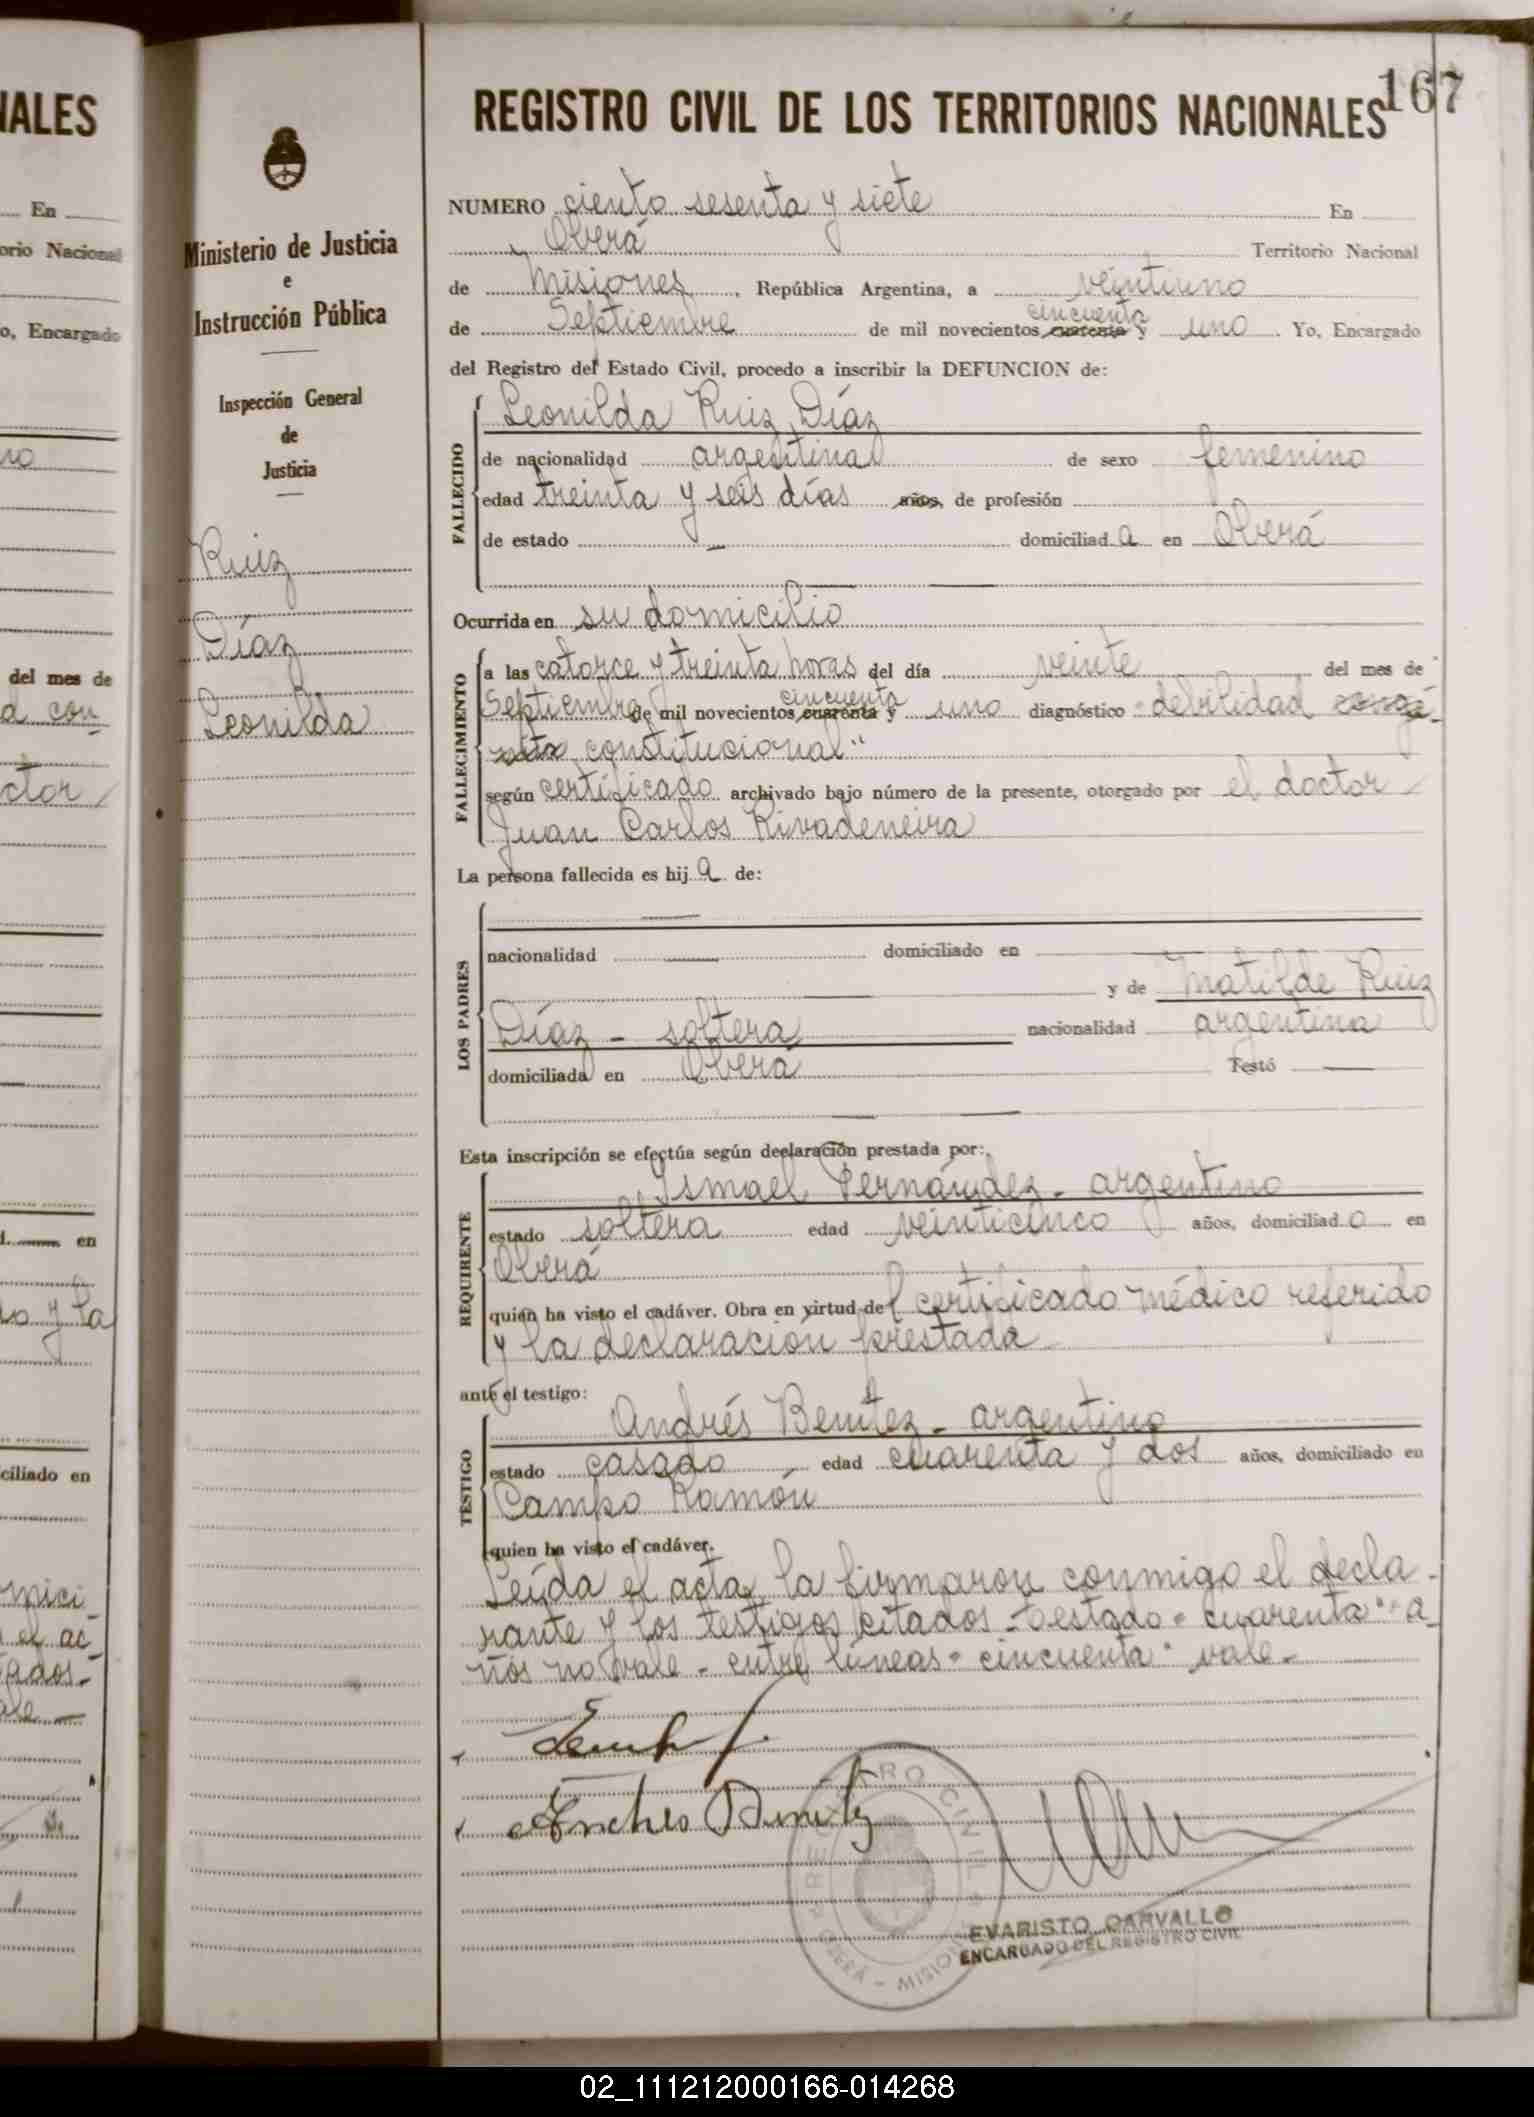 NALES
En
orio Nacional
o, Encargado
no
del mes de
d con-
ctor
en
do y la
ciliado en
mici
el ac-
tados-
ale
Ministerio de Justicia
e
Instrucción Pública
Inspección General
de
Justicia
Ruiz
Díaz
Leonilda
167
REGISTRO CIVIL DE LOS TERRITORIOS NACIONALES
NUMERO ciento sesenta y siete En
Oberá Territorio Nacional
de Misiones, República Argentina, a veintiuno
cincuenta
de Septiembre de mil novecientos cuarenta y uno. Yo, Encargado
del Registro del Estado Civil, procedo a inscribir la DEFUNCION de:
FALLECIDO
Leonilda Ruiz Díaz
de nacionalidad argentina de sexo femenino
edad treinta y seis días años, de profesión
de estado — domiciliad a en Oberá
Ocurrida en su domicilio
FALLECIMIENTO
a las catorce y treinta horas del día veinte del mes de
cincuenta
Septiembre de mil novecientos cuarenta y uno diagnóstico "debilidad
constitucional"
según certificado archivado bajo número de la presente, otorgado por el doctor
Juan Carlos Rivadeneira
La persona fallecida es hij a de:
LOS PADRES
nacionalidad — domiciliado en —
y de Matilde Ruiz
Díaz - soltera nacionalidad argentina
domiciliada en Oberá Testó —
Esta inscripción se efectúa según declaración prestada por:
REQUIRENTE
Ismael Fernández - argentino
estado soltera edad veinticinco años, domiciliad o en
Oberá
quien ha visto el cadáver. Obra en virtud de l certificado médico referido
y la declaración prestada
ante el testigo:
TESTIGO
Andrés Benitez - argentino
estado casado edad cuarenta y dos años, domiciliado en
Campo Ramón
quien ha visto el cadáver.
Leída el acta, la firmaron conmigo el decla-
rante y los testigos citados - Testado "cuarenta" "a
ños no vale - entre líneas "cincuenta" vale -
Andres Benitez
REGISTRO CIVIL
OBERÁ - MISIONES
EVARISTO CARVALLO
ENCARGADO DEL REGISTRO CIVIL
02_111212000166-014268